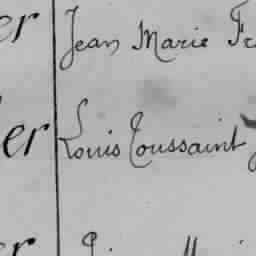 er Jean Marie Fr
er Louis Toussaint
er